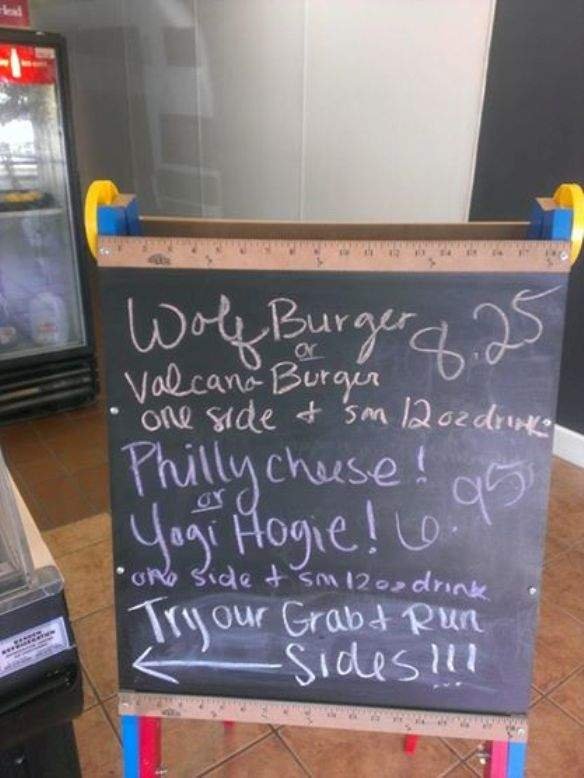 Wolf Burger 8.25
or
Valcano Burger
one side + sm 12 oz drink
Philly cheese!
or
Yogi Hogie! 6.95
one side + sm 12 oz drink
Try our Grab + Run
Sides!!!